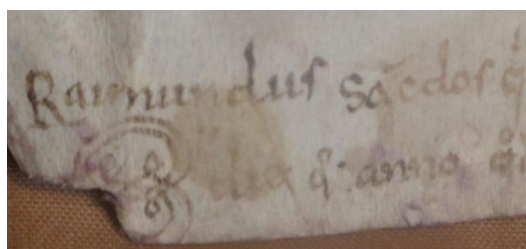 Raimundus Sacdos q
die q anno q